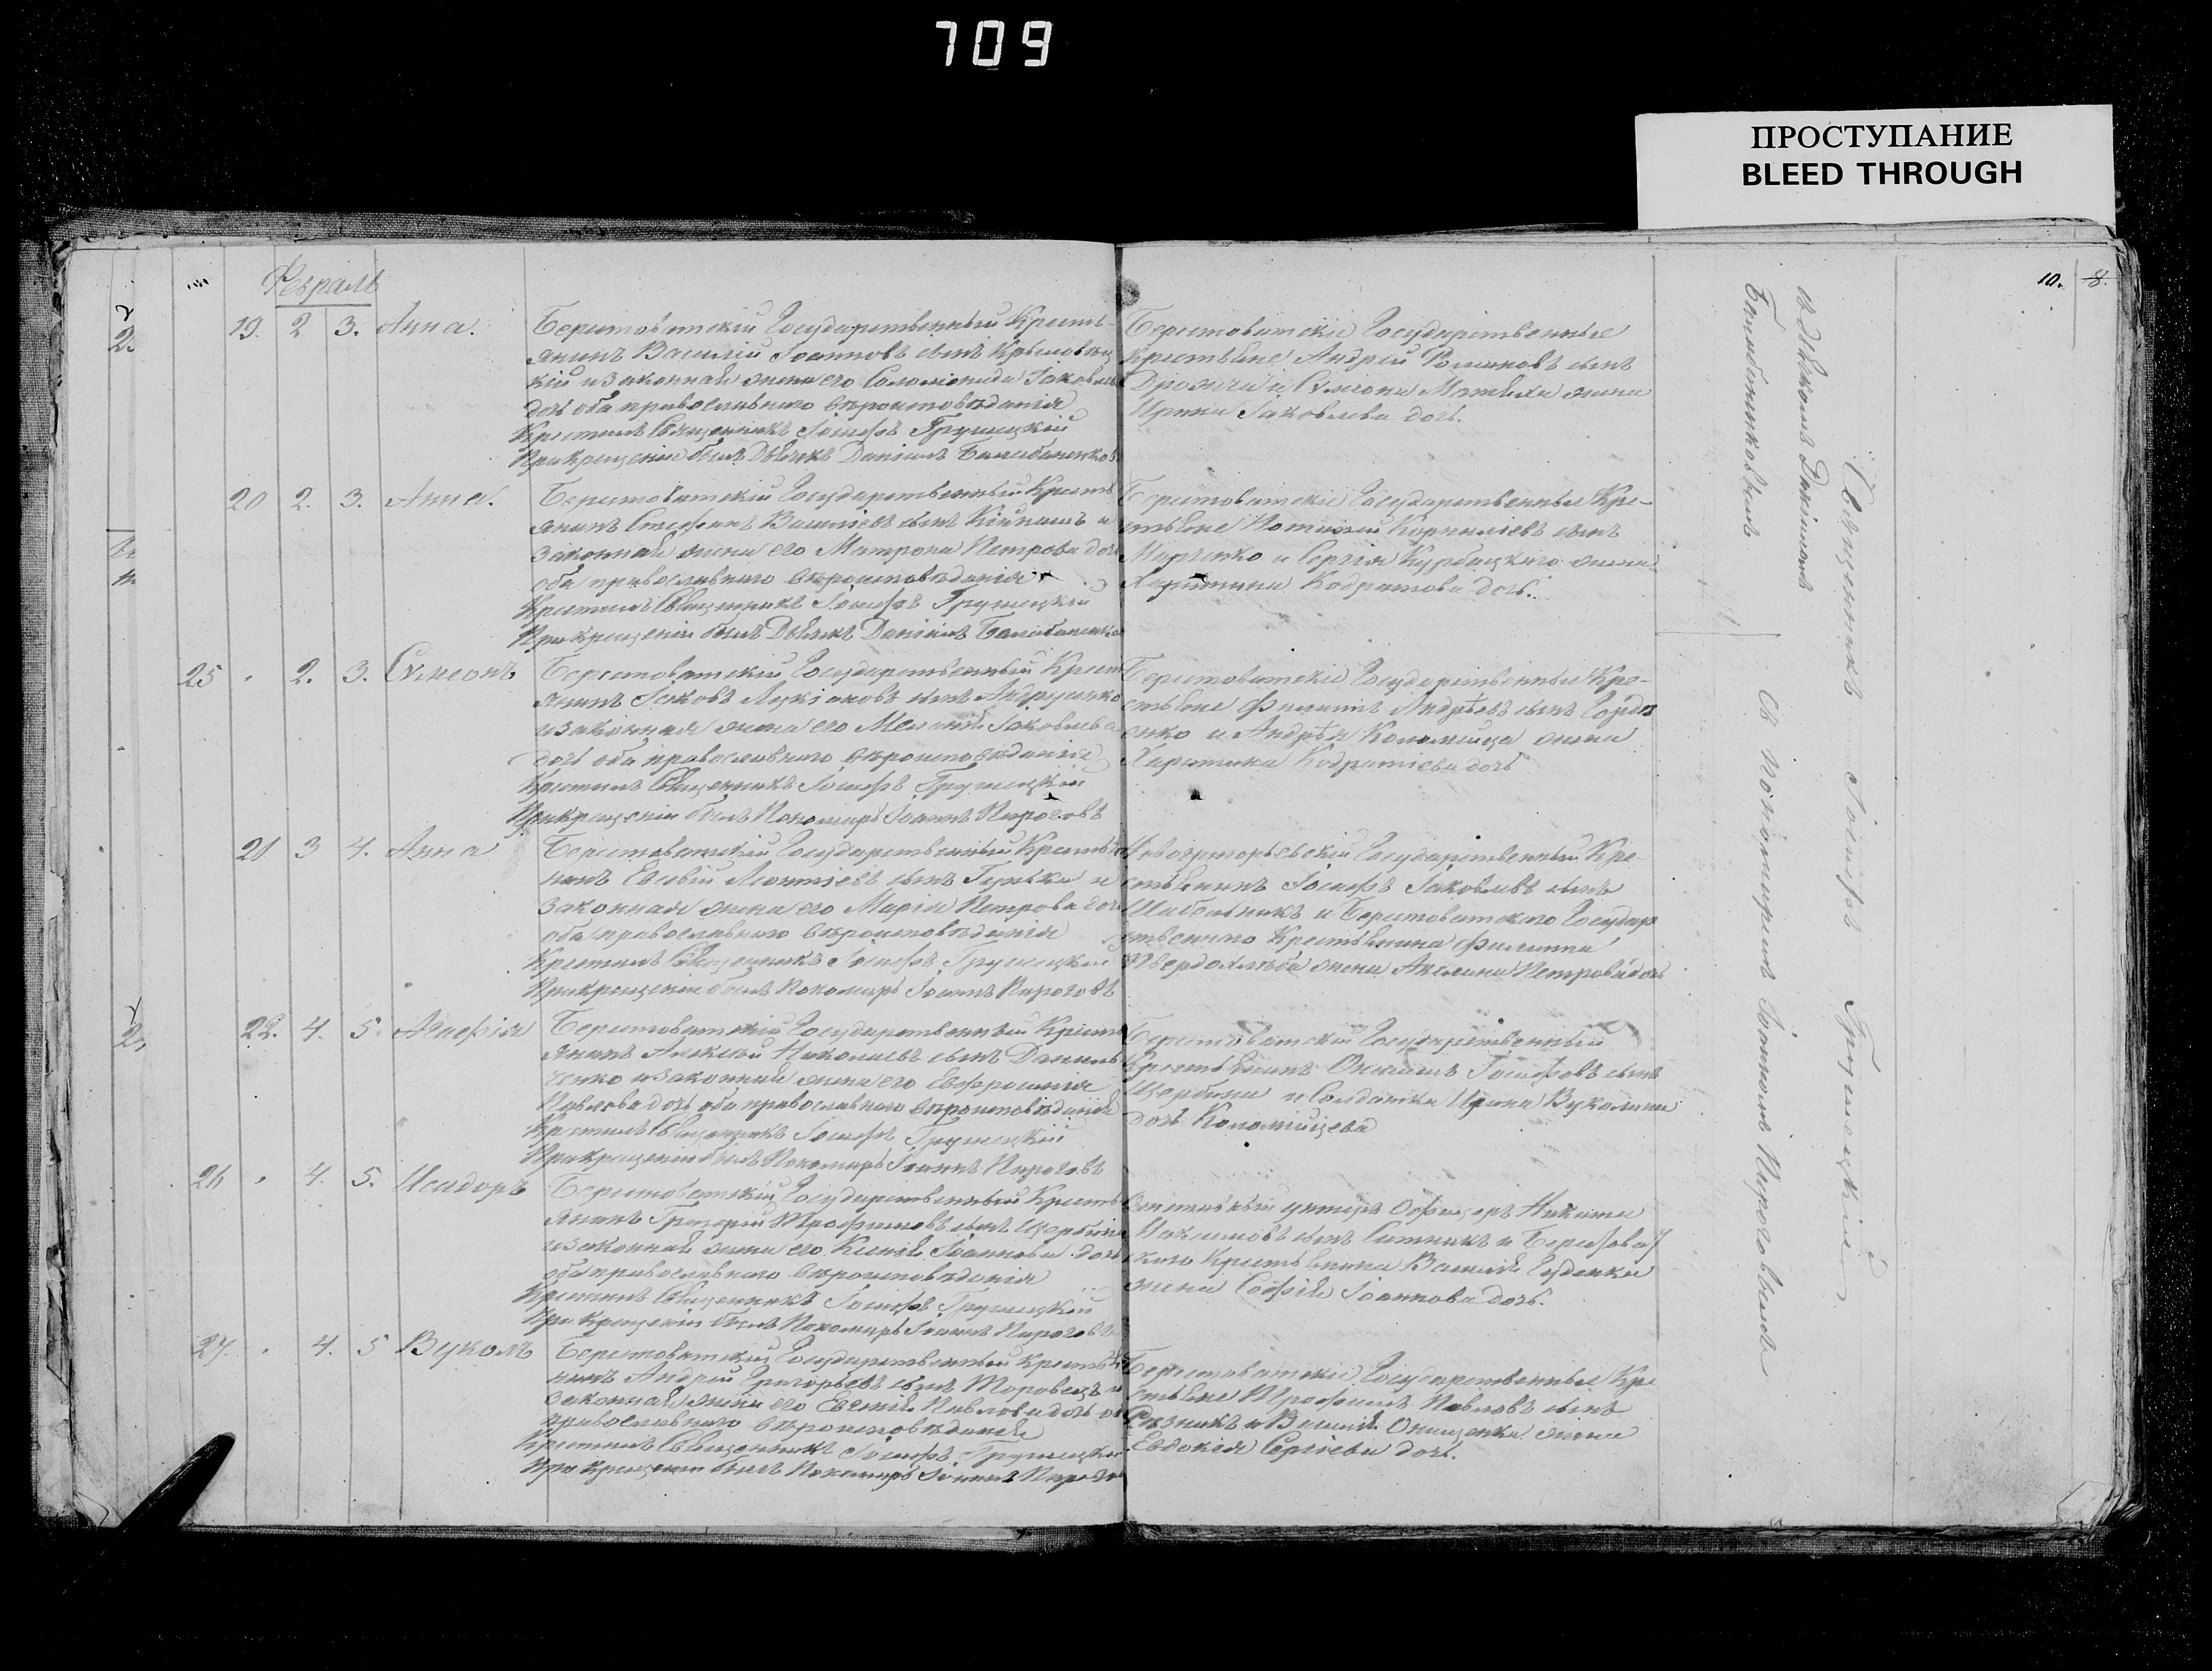 709
ПРОСТУПАНИЕ
BLEED THROUGH
10. 8.
Февраль
19. 2 3. Анна.
Берестоватскій Государственный Кресть-
янинъ Василій Іоанновъ сынъ
кій и законная жена его Соломонида Іаковлева
дочь оба православнаго вѣроисповѣданія
Крестилъ Священникъ Іосифъ Грушецкій
При крещеніи былъ Дьячкъ Даніилъ
Берестоватскіе Государственные
крестьяне Андрей Романовъ сынъ
и Симеона жена
Ирина Іаковлева дочь.
20 2. 3. Анна.
Берестоватскій Государственный Кресть
янинъ Стефанъ Василіевъ сынъ и
законная жена его Матрона Петрова дочь
оба православнаго вѣроисповѣданія
Крестилъ Священникъ Іосифъ Грушецкій
При крещеніи былъ Дьячкъ Даніилъ
Берестоватскіе Государственные Кре-
стьяне Корниліевъ сынъ
Марченко и Сергія Курбацкаго жена
Харитина Кодратова дочь.
25 2. 3. Симеонъ
Берестоватскій Государственный Крест
янинъ Іаковъ Лукіановъ сынъ Андрущенко
и законная жена его Меланія Іаковлева
дочь оба православнаго вѣроисповѣданія
Крестилъ Священникъ Іосифъ Грушецкій
При крещеніи былъ Пономарь Іоаннъ Пироговъ
Берестоватскіе Государственные Кре-
стьяне Филиппъ Андрѣевъ сынъ Горді
енко и Андрѣя Коломійца жена
Харитина Кодратіева дочь
21 3 4. Анна
Берестоватскій Государственный Кресть
нинъ Евсевій Леонтіевъ сынъ и
законная жена его Марія Петрова дочь
оба православнаго вѣроисповѣданія
Крестилъ Священникъ Іосифъ Грушецкій
При крещеніи былъ Пономарь Іоаннъ Пироговъ
Новогригорьевскій Государственный Кре
стьянинъ Іосифъ Іаковлевъ сынъ
Шабельникъ и Берестоватскаго Государ
ственнаго Крестьянина Филиппа
Твердохлѣба жена Акилина Петрова дочь
22. 4. 5. Агафія
Берестоватскій Государственный Кресть
янинъ Алексѣй Николаевъ сынъ Даниль
ченко и законная жена его Евфросинія
Павлова дочь оба православнаго вѣроисповѣданія
Крестилъ Священникъ Іосифъ Грушецкій
При крещеніи былъ Пономарь Іоаннъ Пироговъ
Берестоватскій Государственный
Крестьянинъ Іосифовъ сынъ
Щербина и Солдатка Ирина Вуколина
дочь Коломійцева
26 4. 5. Исидоръ
Берестоватскій Государственный Кресть
янинъ Григорій Трофимовъ сынъ Щербина
и законная жена его Ксенія Іоаннова дочь
оба православнаго вѣроисповѣданія
Крестилъ Священникъ Іосифъ Грушецкій
При крещеніи былъ Пономарь Іоаннъ Пироговъ
Отставный унтеръ Офицеръ Никита
Максимовъ сынъ Ситникъ и Берестоват
скаго Крестьянина Василія
жена Софія Іоаннова дочь.
27. 4. 5 Вуколъ
Берестоватскій Государственный Кресть
нинъ Андрей Григорьевъ сынъ и
законная жена его Евгенія Павлова дочь
православнаго вѣроисповѣданія
Крестилъ Священникъ Іосифъ Грушецкій
При крещеніи былъ Пономарь Іоаннъ
Берестоватскіе Государственные Кре
стьяне Трофимъ Павловъ сынъ
Рѣзникъ и Василія Онищенка жена
Евдокія Сергіева дочь.
Священникъ Іосифъ Грушецкій
съ Дьячкомъ Даніиломъ
съ пономаремъ Іоанномъ Пироговымъ